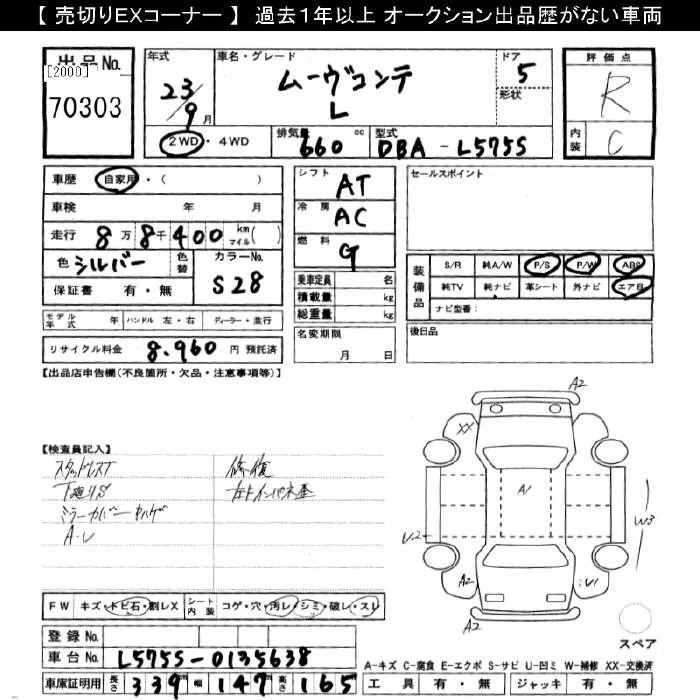 【 売切りEXコーナー 】 過去１年以上 オークション出品歴がない車両
出品No.
[2000]
70303
年式
23/9月
車名・グレード
ムーヴコンテ
L
ドア
5
形状
評価点
R
内装
C
2WD・4WD
排気量
660 cc
型式
DBA - L575S
車歴 自家用・( )
車検 年 月
走行 8万8千400 km マイル( )
色 シルバー
色替
カラーNo.
S28
保証書 有・無
シフト
AT
冷房
AC
燃料
G
乗車定員 名
積載量 kg
総重量 kg
名変期限
月 日
セールスポイント
装備品
S/R 純A/W P/S P/W ABS
純TV 純ナビ 革シート 外ナビ エアB
ナビ型番：
後日品
モデル年式 年 ハンドル 左・右 ディーラー・並行
リサイクル料金 8,960 円 預託済
【出品店申告欄(不良箇所・欠品・注意事項等)】
【検査員記入】
スタッドレスT
下廻りS
ミラーカバーキハゲ
A-U
修復
右Fインパネ歪
FW キズ・トビ石・割レX
シート内装 コゲ・穴・汚レ・シミ・破レ・スレ
登録No.
車台No. L575S-0135638
車庫証明用 長さ 339 幅 147 高さ 165
A2
XX
A1
U2
W3
A2
U1
A2
スペア
A-キズ C-腐食 E-エクボ S-サビ U-凹ミ W-補修 XX-交換済
工具 有・無 ジャッキ 有・無